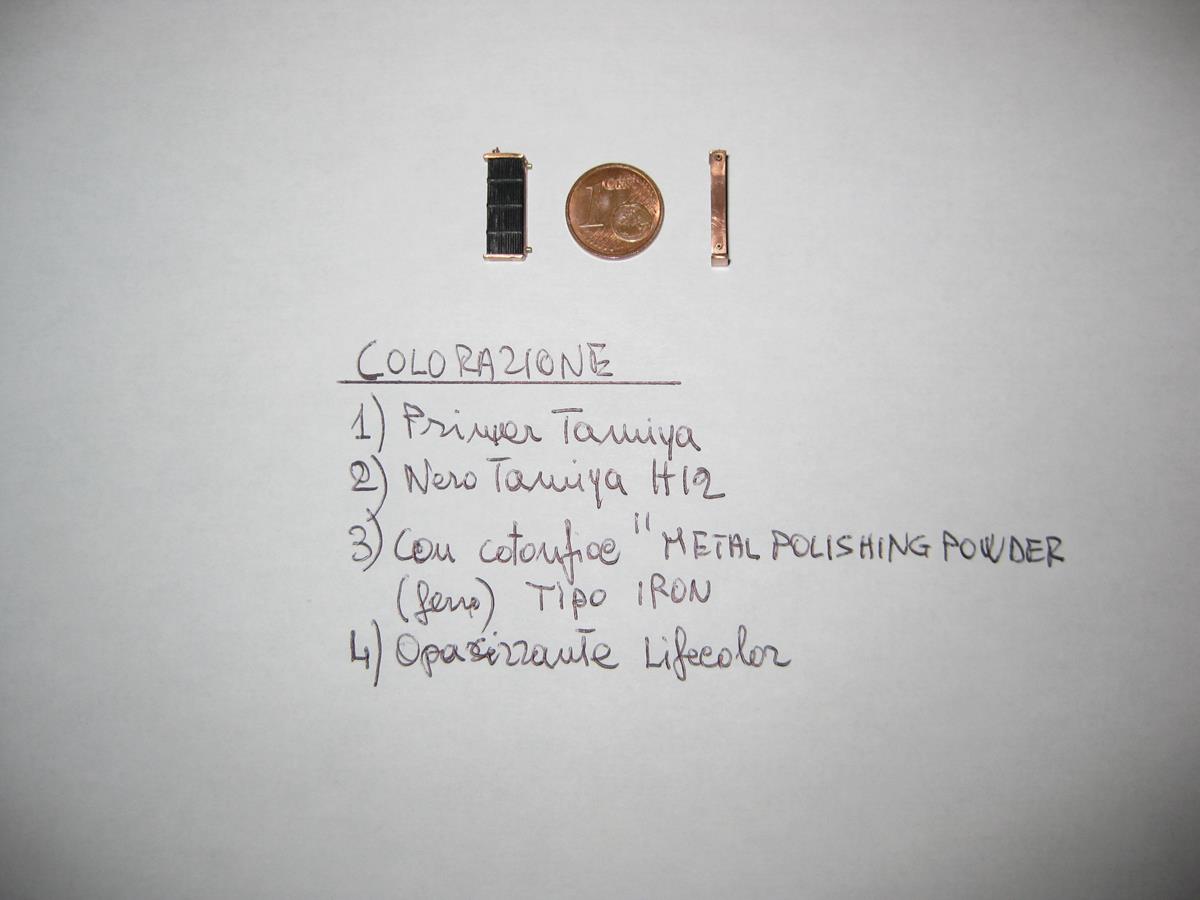 1
COLORAZIONE
1) Primer Tamiya
2) Nero Tamiya H12
3) Con cotonfioc "METAL POLISHING POWDER
(ferro) TIPO IRON
4) Opacizzante Lifecolor